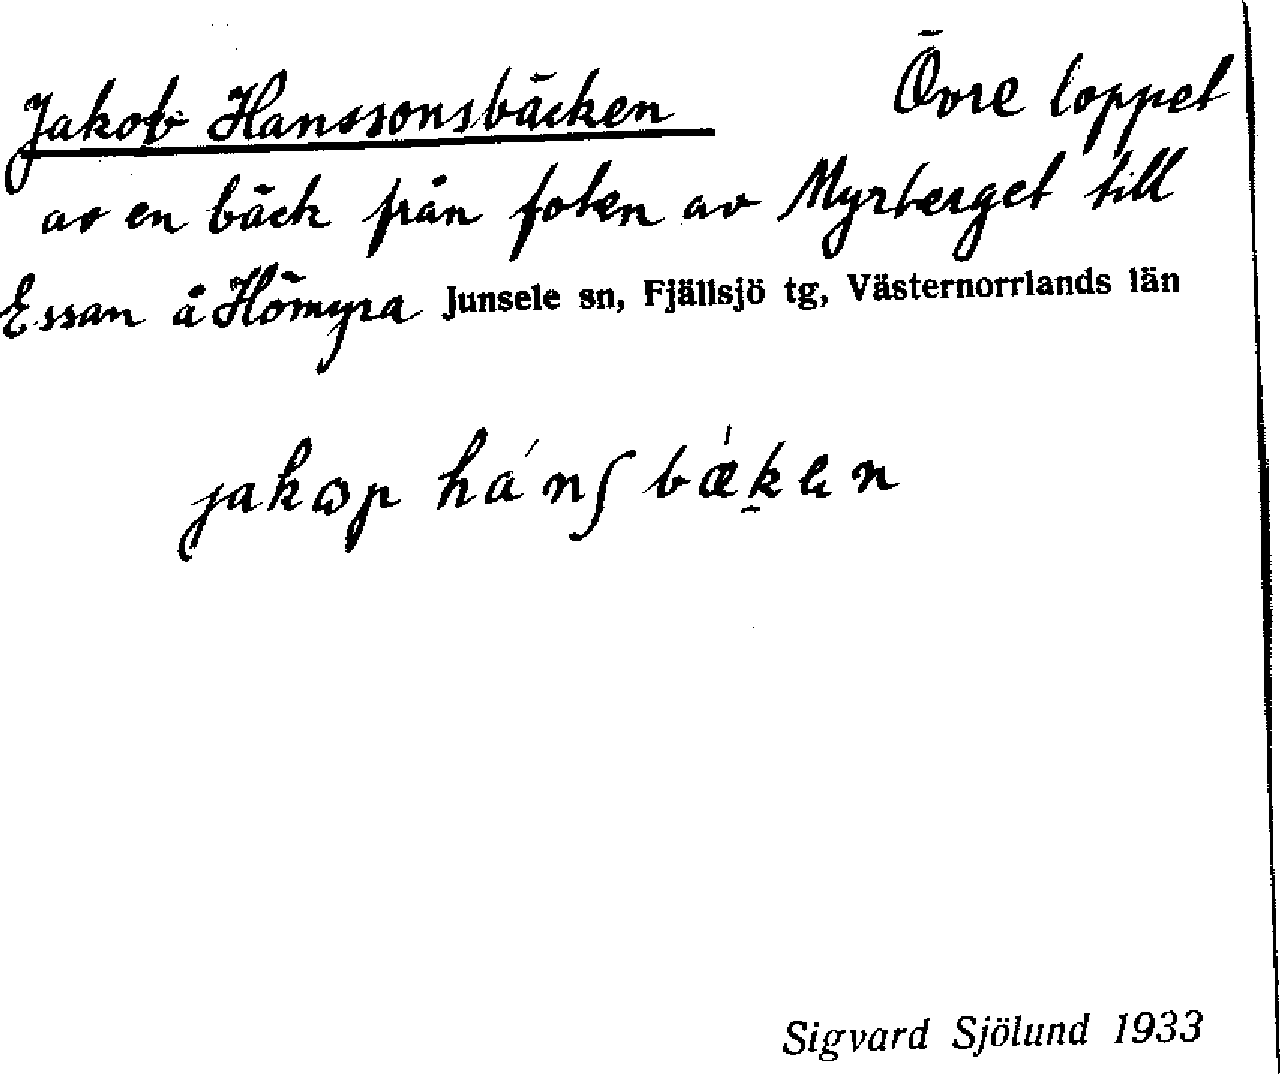 Jakob Hanssonsbäcken Övre loppet
av en bäck från foten av Myrberget till
Essan å Hömyra Junsele sn, Fjällsjö tg, Västernorrlands län
jakɷp há́nʃ bæ̀kɐn
Sigvard Sjölund 1933